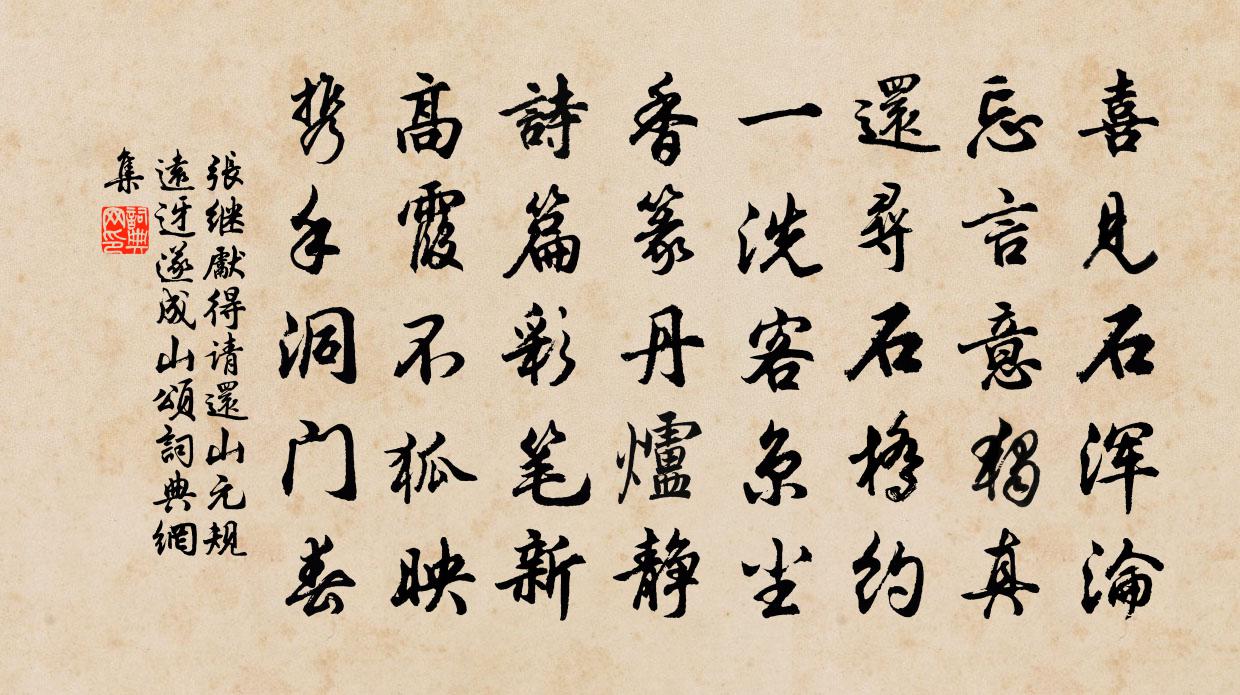 喜见石浑淪
忘言意獨真
還尋石橋約
一洗客京尘
香篆丹爐静
詩篇彩笔新
高霞不狐映
携手洞门春
張继獻得请還山元規
遠迓遂成山頌詞典網
集
詞典网印